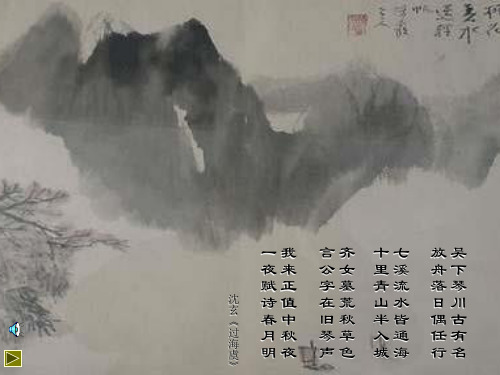 吴下琴川古有名
放舟落日偶任行
七溪流水皆通海
十里青山半入城
齐女墓荒秋草色
言公字在旧琴声
我来正值中秋夜
一夜赋诗春月明
沈玄《过海虞》